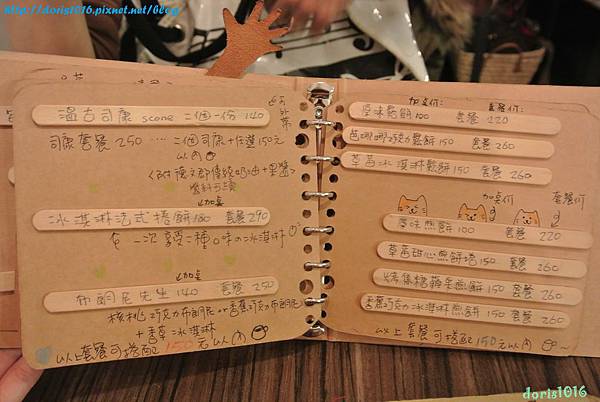 http://doris1016.pixnet.net/blog
溫古司康 scone 二個一份 140
可外帶
司康套餐 250 ······ 二個司康+任選150元
以內
<附 德文郡傳統奶油+果醬>
↙加桌
冰淇淋法式捲餅 180 套餐 290
一次享受二種口味の冰淇淋
↙加桌
布朗尼先生 140 套餐 250
核桃巧克力布朗尼 or 香蕉巧克力布朗尼
+香草冰淇淋
以上套餐可搭配150元以內
加桌價: 套餐價:
原味鬆餅 100 套餐 220
芭娜娜巧克力鬆餅 150 套餐 260
草莓冰淇淋鬆餅 150 套餐 260
加桌價 套餐價
原味煎餅 100 套餐 220
草莓甜心煎餅塔 150 套餐 260
焦糖蘋果煎餅 150 套餐 260
香蕉巧克力冰淇淋煎餅 150 套餐 260
以上套餐可搭配150元以內 ~
doris1016